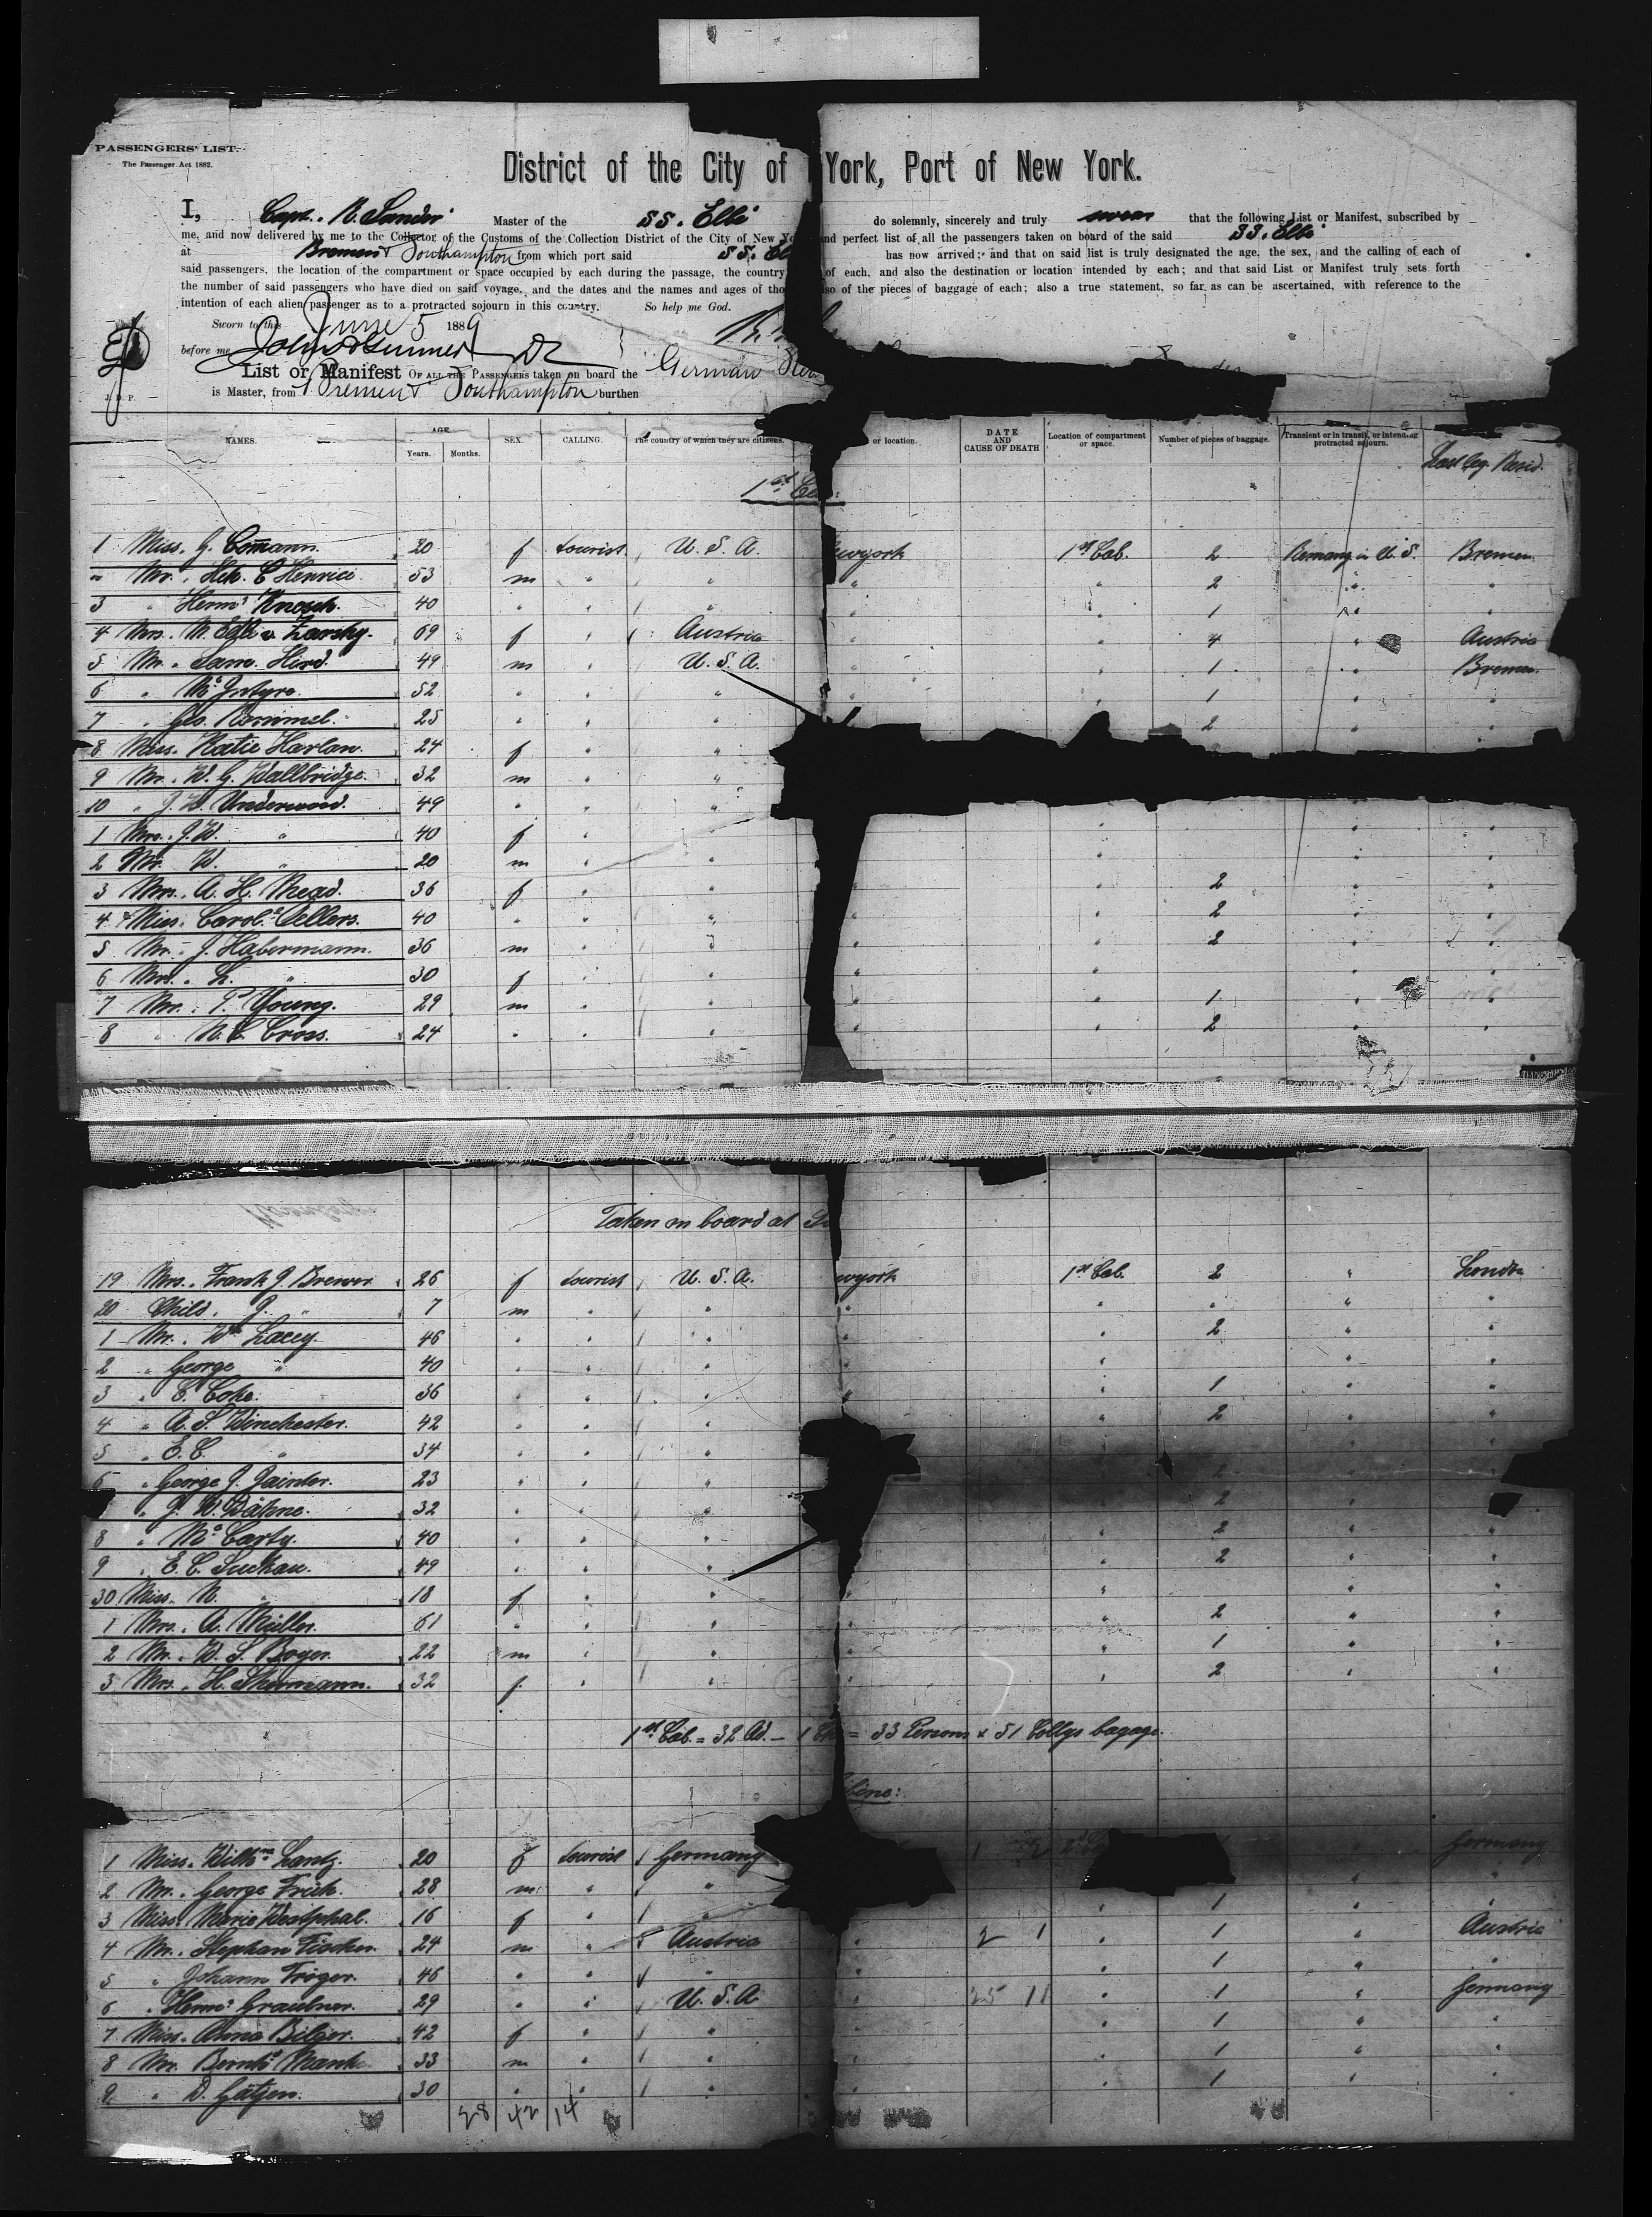 PASSENGERS' LIST.
The Passenger Act 1882.
District of the City of York, Port of New York.
I, Capt. R. Sander Master of the SS. Elbe do solemnly, sincerely and truly swear that the following List or Manifest, subscribed by
me, and now delivered by me to the Collector of the Customs of the Collection District of the City of New and perfect list of all the passengers taken on board of the said SS. Elbe
at Bremen & Southampton from which port said SS. has now arrived; and that on said list is truly designated the age, the sex, and the calling of each of
said passengers, the location of the compartment or space occupied by each during the passage, the country of each, and also the destination or location intended by each; and that said List or Manifest truly sets forth
the number of said passengers who have died on said voyage, and the dates and the names and ages of of the pieces of baggage of each; also a true statement, so far as can be ascertained, with reference to the
intention of each alien passenger as to a protracted sojourn in this country. So help me God.
Sworn to this June 5 1889
before me
List or Manifest OF ALL THE PASSENGERS taken on board the German
J. D. P. is Master, from Bremen & Southampton burthen
NAMES. AGE. Years. Months. SEX. CALLING. The country of which they are citizens. or location. DATE AND CAUSE OF DEATH Location of compartment or space. Number of pieces of baggage. Transient or in transit, or intending protracted sojourn.
Last leg. Resid.
1st
1 Miss. G. Comann. 20 f tourist U. S. A. wyork 1st Cab. 2 Remang in U. S. Bremen
" Mr. Hch. C Henrici 53 m " " " " 2 " "
3 " Herm. Knosch. 40 " " " " " 1 " "
4 Mrs. M. Edle v. Zarsky. 69 f " Austria " " 4 " Austria
5 Mr. Sam. Hird. 49 m " U. S. A. " " 1 " Bremen.
6 " Mc Intyre. 52 " " " " " 1 " "
7 " Geo. Rommel. 25 " " " 2 " "
8 Miss. Katie Harlan. 24 f " "
9 Mr. W. G. Wallbridge. 32 m " "
10 " J. W. Underwood. 49 " " "
1 Mrs. J. W. " 40 f " " " "
2 Mr. W. " 20 m " " " " "
3 Mrs. A. H. Mead. 36 f " " " 2 " "
4 Miss. Carol. Oellers. 40 " " " " " 2 " "
5 Mr. J. Habermann. 36 m " " " " 2 " "
6 Mrs. L. " 30 f " " " " " "
7 Mr. P. Young. 29 m " " " " 1 " "
8 " N. C. Cross. 24 " " " " " 2 " "
Taken on board at
19 Mrs. Frank J. Brewer 26 f tourist U. S. A. wyork 1st Cab. 2 " London
20 Child. J. " 7 m " " " " " " "
1 Mr. Wm Lacey. 46 " " " " " 2 " "
2 " George " 40 " " " " " " "
3 " E. Coke. 36 " " " " " 1 " "
4 " A. S. Winchester. 42 " " " " 2 " "
5 " E. C. " 34 " " "
6 " George J. Jainter. 23 " " " 2
" J. W. Dähne. 32 " " " 2 "
8 " Mc Carty. 40 " " " " 2 " "
9 " E. C. Suckau. 49 " " " " 2 " "
30 Miss. N. " 18 f " " " " " "
1 Mrs. A. Müller. 61 " " " " " 2 " "
2 Mr. W. S. Boger. 22 m " " " " 1 " "
3 Mrs. H. Shermann. 32 f " " " " 2 " "
1st Cab. = 32 Ad. – 1 = 33 Persons & 51 Collys bagage.
1 Miss. Wilhma Lantz. 20 f tourist Germany Germany
2 Mr. George Früh. 28 m " " " "
3 Miss. Marie Westphal. 16 f " " " 1 " "
4 Mr. Stephan Fischer. 24 m " Austria " 2 1 " 1 " Austria
5 " Johann Tröger. 46 " " " " " 1 " "
6 " Herm. Graubner. 29 " " U. S. A. " 25 11 " 1 " Germany
7 Miss. Anna Bilger. 42 f " " " " 1 " "
8 Mr. Bernh. Mank 33 m " " " " 1 " "
9 " D. Gätjen. 30 " " " " " 1 " "
28 42 14